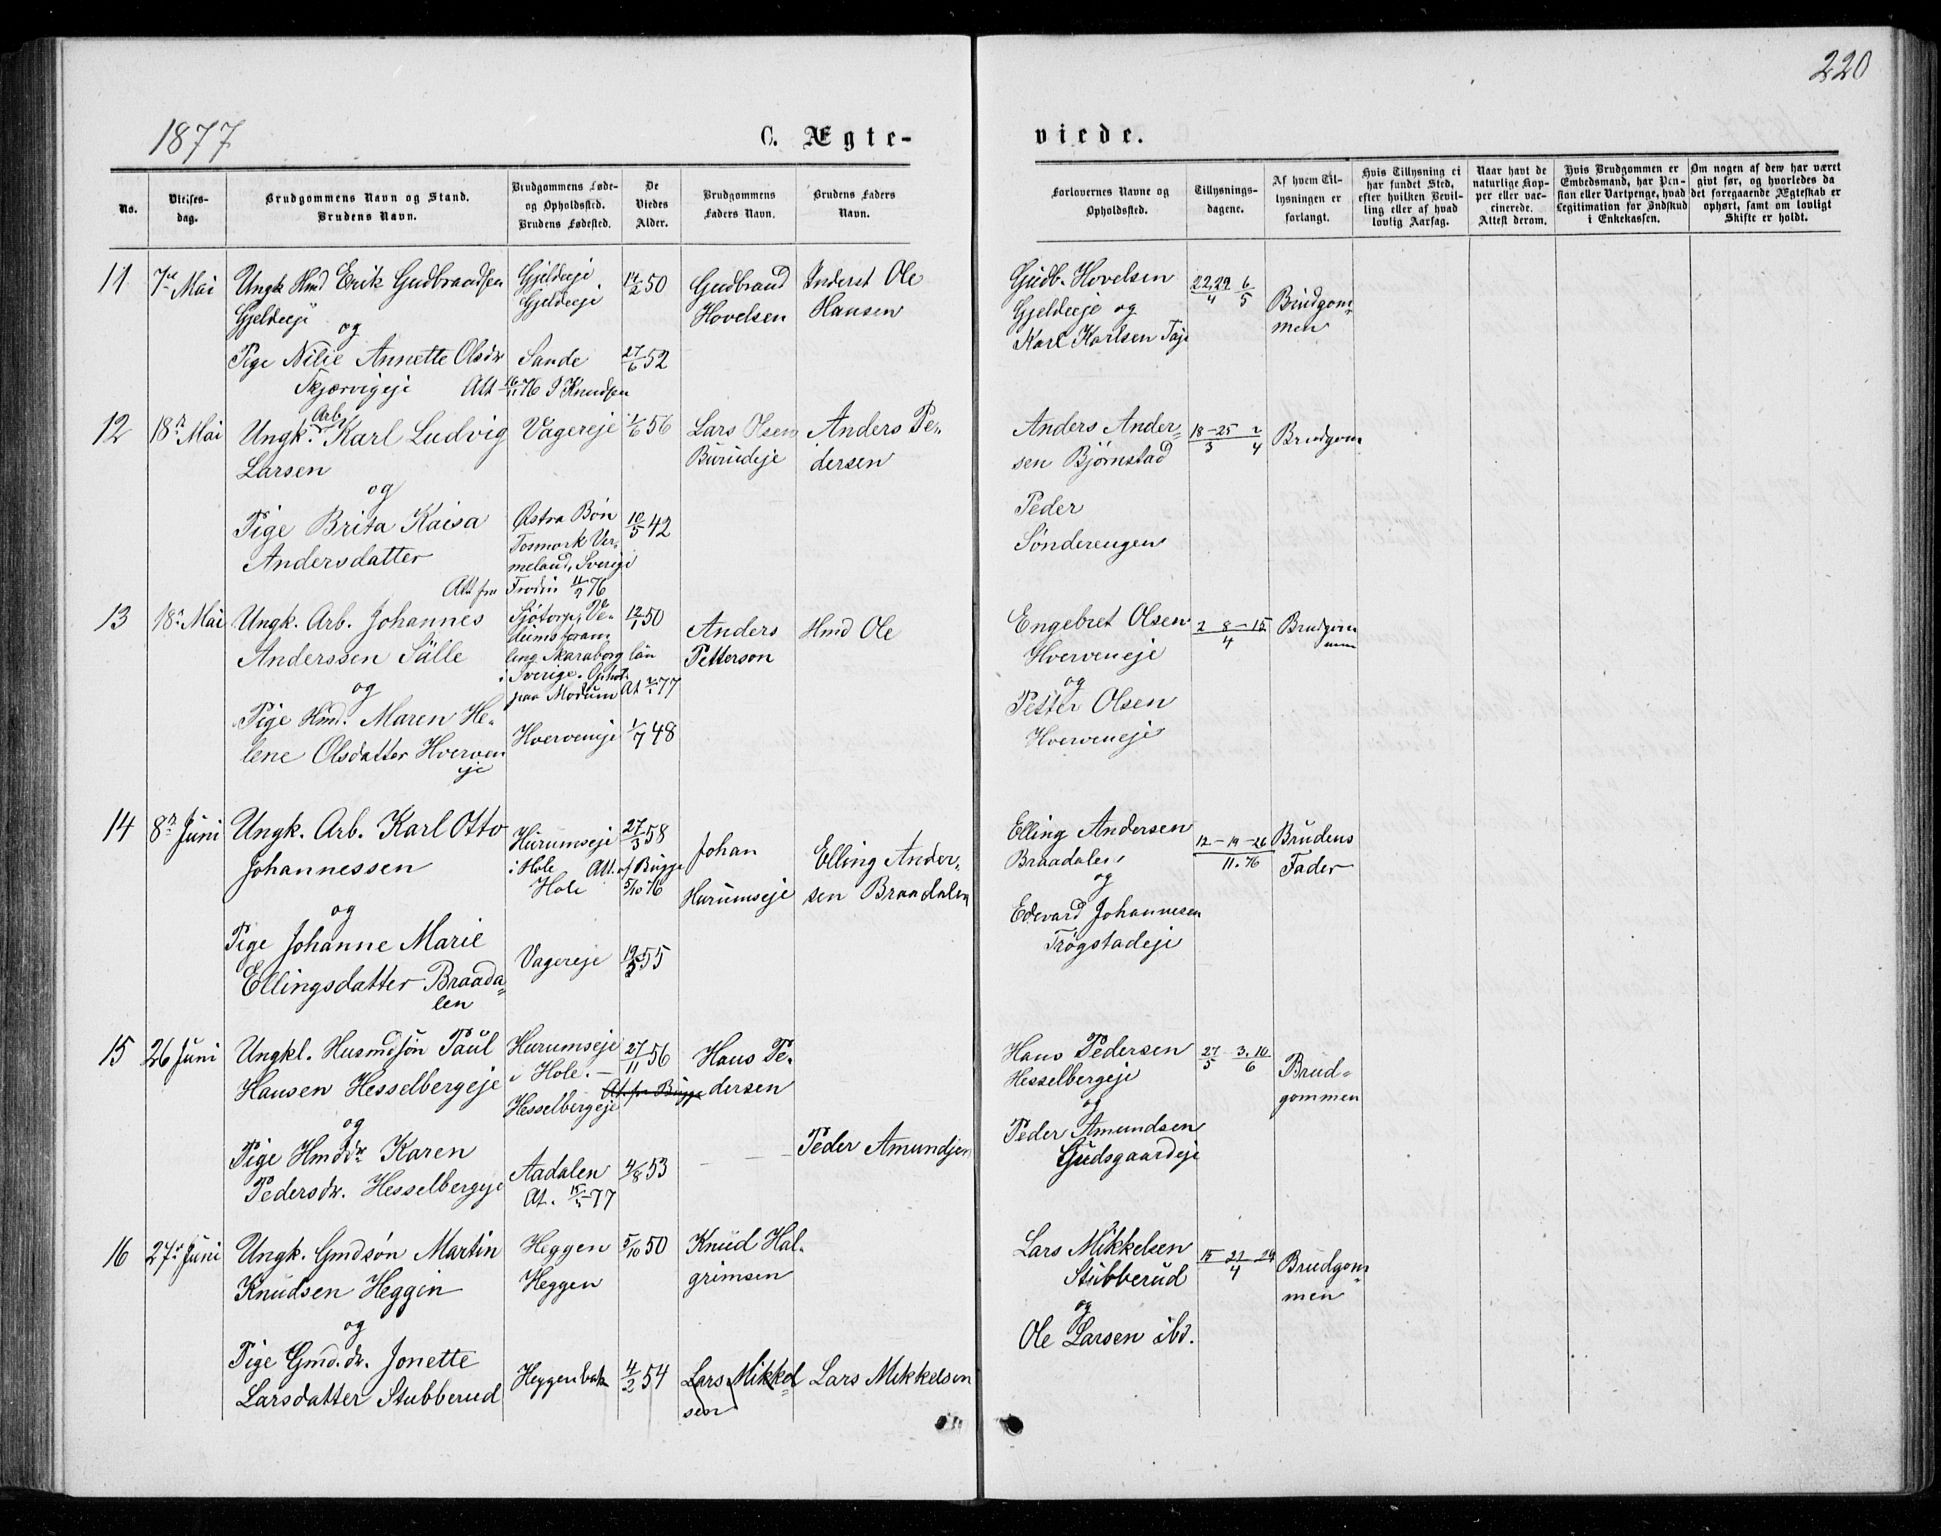 220
1877
C. Ægte-
viede.
No.
Vielses-
dag.
Brudgommens Navn og Stand.
Brudens Navn.
Brudgommens Føde-
og Opholdssted.
Brudens Fødested.
De
Viedes
Alder.
Brudgommens
Faders Navn.
Brudens Faders
Navn.
Forlovernes Navne og
Opholdssted.
Tillysnings-
dagene.
Af hvem Til-
lysningen er
forlangt.
Hvis Tillysning ei
har fundet Sted,
efter hvilken Bevil-
ling eller af hvad
lovlig Aarsag.
Naar havt de
naturlige Kop-
per eller vac-
cinerede.
Attest derom.
Hvis Brudgommen er
Embedsmand, har Pen-
sion eller Vartpenge, hvad
Legitimation for Indskud
i Enkekassen.
Om nogen af dem har været
gift før, og hvorledes da
det foregaaende Ægteskab er
ophørt, samt om lovligt
Skifte er holdt.
11
7de Mai
Ungk Hmd Erik Gudbrandsen
Gjeldeeje
og
Pige Nilie Annette Olsdr
Skjærvigeje
Gjeldeeje
Gjeldeeje
Sande
Att 16/11 76 P Knudsen
14/2 50
27/6 52
Gudbrand
Hovelsen
Inderst Ole
Hansen
Gudb. Hovelsen
Gjeldeeje og
Karl Karlsen
22,29/4 6/5
Brudgom-
men
12
18n Mai
Ungk. Arb. Karl Ludvig
Larsen
og
Pige Brita Kaisa
Andersdatter
Vågereje
Østra Bön
Fosmork Ver-
meland, Sverige
Att fra Frodin 11/2 76
1/6 56
10/5 42
Lars Olsen
Burudeje
Anders Pe-
dersen
Anders Ander-
sen Bjørnstad
Peder
Sönderengen
18-25/3 2/4
Brudgom
13
18n Mai
Ungk. Arb. Johannes
Anderssen Sälle
og
Pige Hmd. Maren He-
lene Olsdatter Hverven
eje
Sjötorp, Ve-
dums foram
ling Skaraborg län
i Sverige. Ophol
paa Modum At 2/1 77
Hverveneje
12/1 50
1/7 48
Anders
Petterson
Hmd Ole
Engebret Olsen
Hverveneje
og
Petter Olsen
Hverveneje
2 8-15/4
Brudgom
men
14
8n Juni
Ungk. Arb. Karl Otto
Johannessen
og
Pige Johanne Marie
Ellingsdatter Braada-
len
Hurumseje
i Hole Att. af Bugge
Hole 5/10 76
Vagereje
27/3 58
19/5 55
Johan
Hurumseje
Elling Ander-
sen Braadalen
Elling Andersen
Braadalen
og
Edevard Johannesen
Trøgstadeje
12-19-26/11.76
Brudens
Fader
15
26 Juni
Ungkl. Husmdsøn Paul
Hansen Hesselbergeje
og
Pige Hmddr Karen
Pedersdr. Hesselbergeje
Hurumseje
i Hole.-
At. fra Bugge
Hesselbergeje
Aadalen
At. 15/5 77
27/11 56
4/8 53
Hans Pe-
dersen
Peder Amundsen
Hans Pedersen
Hesselbergeje
og
Peder Amundsen
Gudsgaardeje
27/5 3.10/6
Brud-
gommen
16
27de Juni
Ungk. Gmdsøn Martin
Knudsen Heggen
og
Pige Gmd.dr. Jonette
Larsdatter Stubberud
Heggen
Heggen
Heggenbak
5/10 50
4/2 54
Knud Hal-
grimsen
Lars Mikkel
sen
Lars Mikkelsen
Lars Mikkelsen
Stubberud
og
Ole Larsen ibd.
15-21-29/4
Brudgom-
men